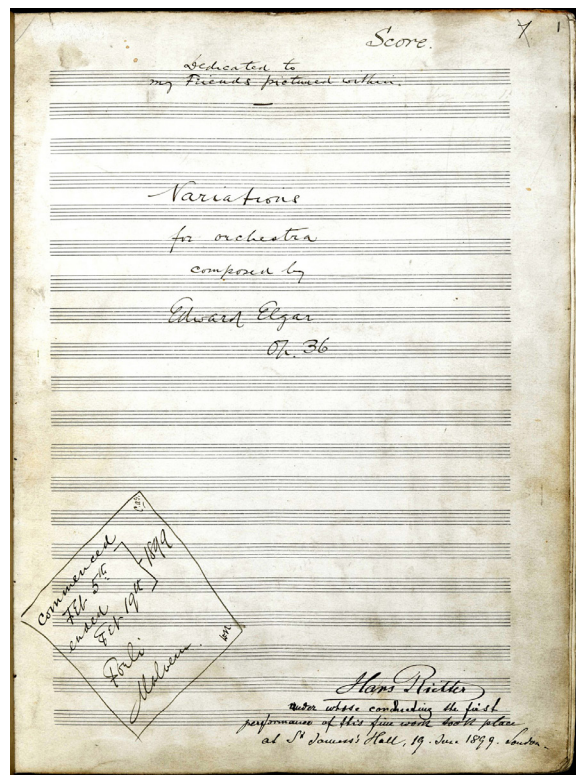 Score.
7
1
Dedicated to
my Friends pictured within.
Variations
for orchestra
composed by
Edward Elgar
Op. 36
Commenced
Feb 5th
ended
Feb 19th
1899
Forli
Malvern.
Hans Richter
under whose conducting the first
performance of this fine work took place
at St James's Hall, 19. June 1899. London.